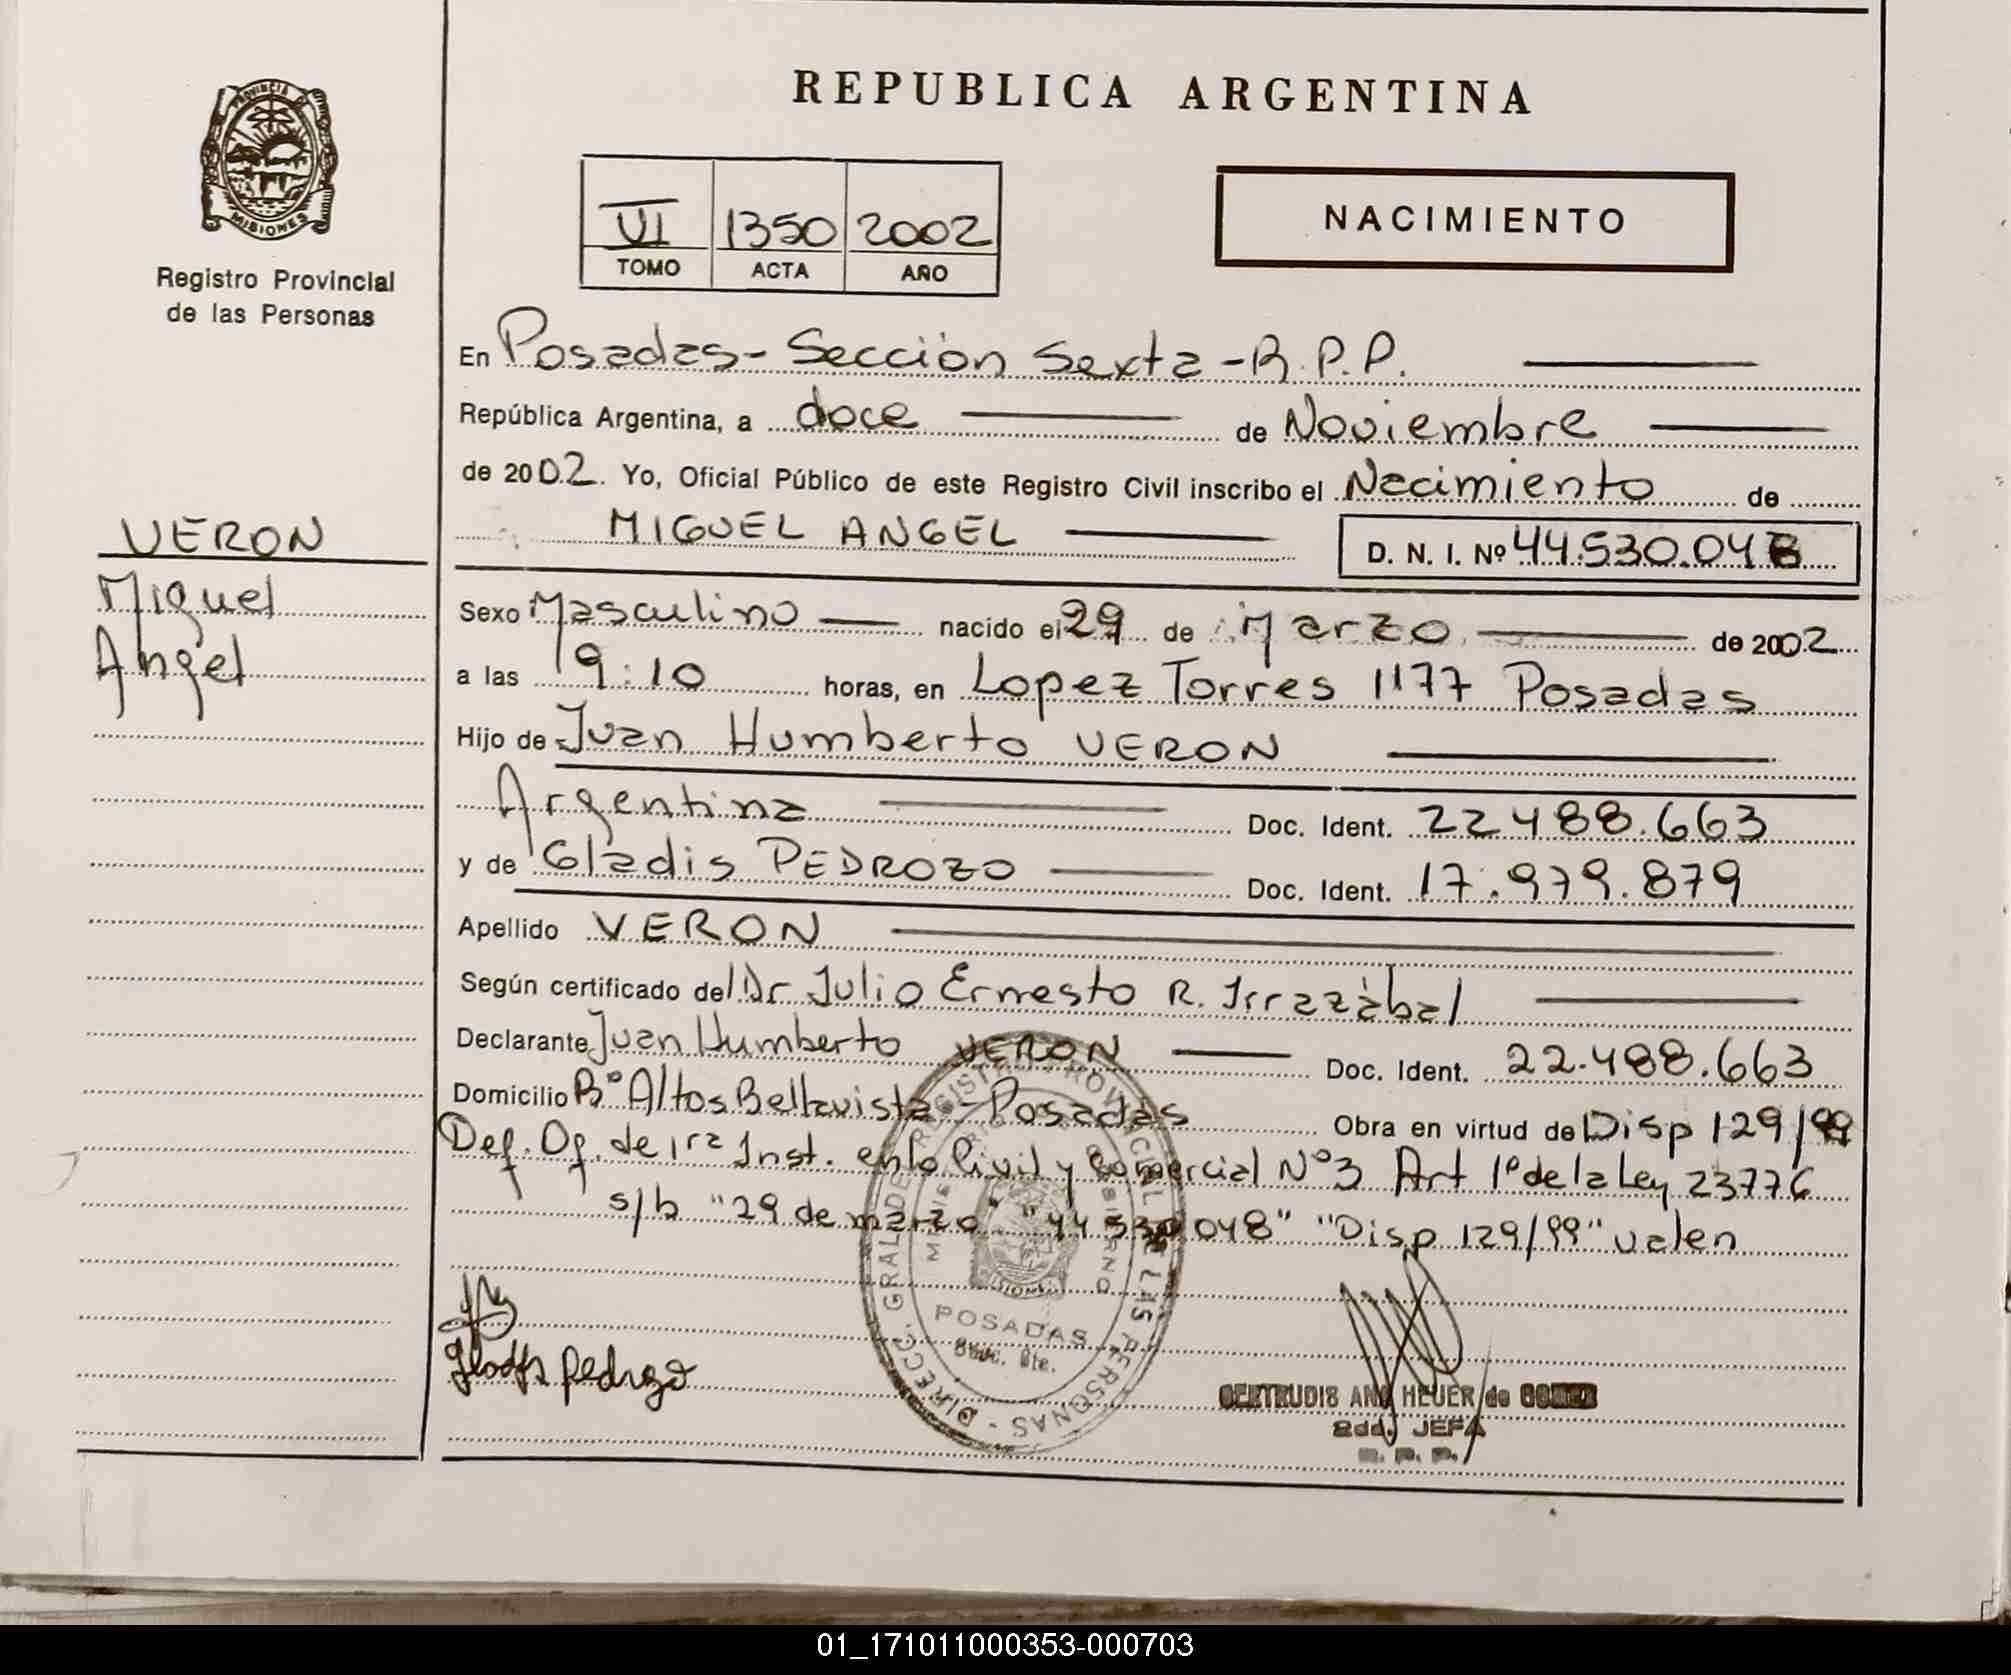 REPUBLICA ARGENTINA
PROVINCIA DE
MISIONES
Registro Provincial
de las Personas
VI 1350 2002
TOMO ACTA AÑO
NACIMIENTO
En Posadas - Sección Sexta - R.P.P.
República Argentina, a doce de Noviembre
de 2002. Yo, Oficial Público de este Registro Civil inscribo el Nacimiento de
MIGUEL ANGEL D. N. I. Nº 44.530.048
VERON
Miguel
Angel
Sexo Masculino nacido el 29 de Marzo de 2002
a las 19:10 horas, en Lopez Torres 1177 Posadas
Hijo de Juan Humberto VERON
Argentina Doc. Ident. 22488.663
y de Gladis PEDROZO Doc. Ident. 17.979.879
Apellido VERON
Según certificado del Dr Julio Ernesto R. Irrazàbal
Declarante Juan Humberto VERON Doc. Ident. 22.488.663
Domicilio Bº Altos Bellavista - Posadas Obra en virtud de Disp 129/99
Def. Of. de 1ra Inst. en lo Civil y Comercial Nº3 Art 1º de la Ley 23776
s/b "29 de marzo" "44530048" "Disp 129/99" valen
DIRECC. GRAL DE REGISTRO PROVINCIAL DE LAS PERSONAS
MISIONES
POSADAS
GERTRUDIS ANA HEUER de GOMEZ
2da. JEFA
R. P. P.
01_171011000353-000703